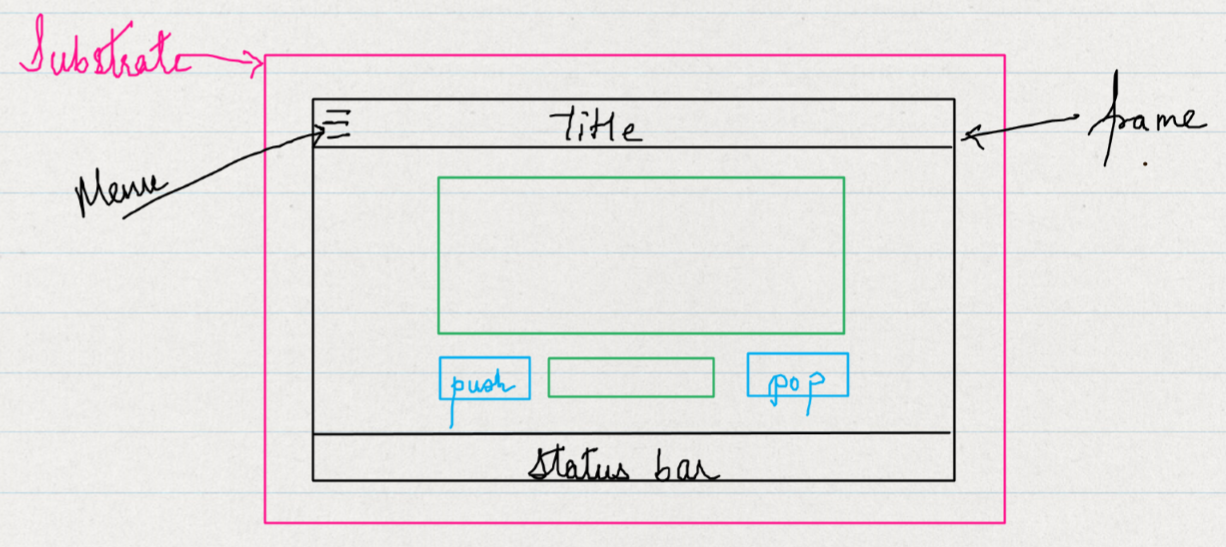 Substrate
Title
frame
Menu
push
pop
Status bar